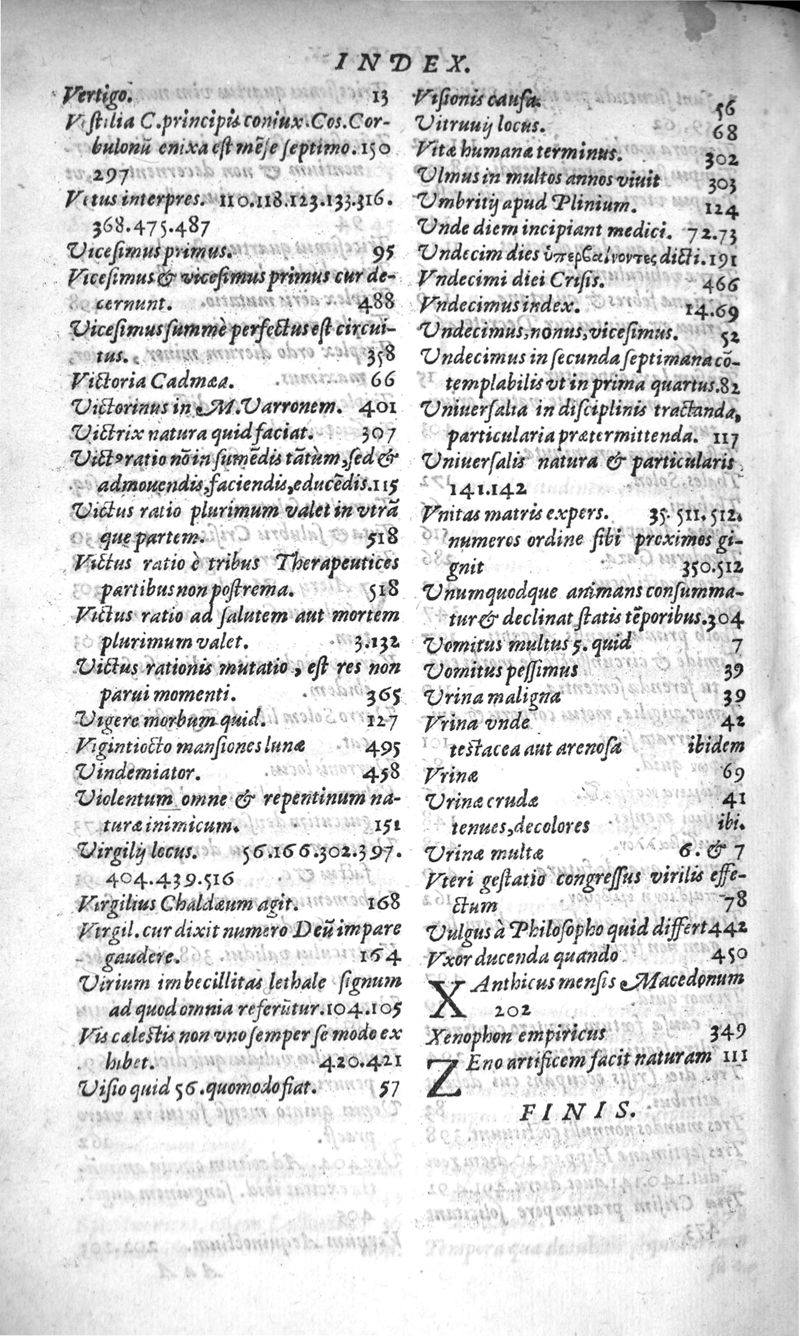 INDEX.
Vertigo. 13
Vestilia C. principis coniux. Cos. Cor-
bulonū enixa est mēse septimo. 150
297
Vetus interpres. 110.118.123.133.316.
368.475.487
Vicesimus primus. 95
Vicesimus & vicesimus primus cur de-
cernunt. 488
Vicesimus summè perfectus est circui-
tus. 358
Victoria Cadmæa. 66
Victorinus in M. Varronem. 401
Victrix natura quid faciat. 307
Vict⁹ ratio nō in sumēdis tātùm, sed &
admouendis, faciendis, educēdis. 115
Victus ratio plurimum valet in vtrā
que partem. 518
Victus ratio è tribus Therapeutices
partibus non postrema. 518
Victus ratio ad salutem aut mortem
plurimum valet. 3.132
Victus rationis mutatio, est res non
parui momenti. 365
Vigere morbum quid. 127
Vigintiocto mansiones lunæ 495
Vindemiator. 458
Violentum omne & repentinum na-
turæ inimicum. 151
Virgilij locus. 56.166.302.397.
404.439.516
Virgilius Chaldæum agit. 168
Virgil. cur dixit numero Deū impare
gaudere. 164
Virium imbecillitas lethale signum
ad quod omnia referūtur. 104.105
Vis cælestis non vno semper se modo ex
hibet. 420.421
Visio quid 56. quomodo fiat. 57
Visionis causa. 56
Vitruuij locus. 68
Vitæ humanæ terminus. 302
Vlmus in multos annos viuit 303
Vmbritij apud Plinium. 124
Vnde diem incipiant medici. 72.73
Vndecim dies ὑπερβαίνοντες dicti. 191
Vndecimi diei Crisis. 466
Vndecimus index. 14.69
Vndecimus, nonus, vicesimus. 52
Vndecimus in secunda septimana cō-
templabilis vt in prima quartus. 82
Vniuersalia in disciplinis tractanda,
particularia prætermittenda. 117
Vniuersalis natura & particularis
141.142
Vnitas matris expers. 35.511.512.
numeros ordine sibi proximos gi-
gnit 350.512
Vnumquodque animans consumma-
tur & declinat statis tēporibus. 304
Vomitus multus 5. quid 7
Vomitus pessimus 39
Vrina maligna 39
Vrina vnde 42
testacea aut arenosa ibidem
Vrinæ 69
Vrinæ crudæ 41
tenues, decolores ibi.
Vrinæ multæ 6. & 7
Vteri gestatio congressus virilis effe-
ctum 78
Vulgus à Philosopho quid differt 442
Vxor ducenda quando 450
XAnthicus mensis Macedonum
202
Xenophon empiricus 349
ZEno artificem facit naturam 111
FINIS.